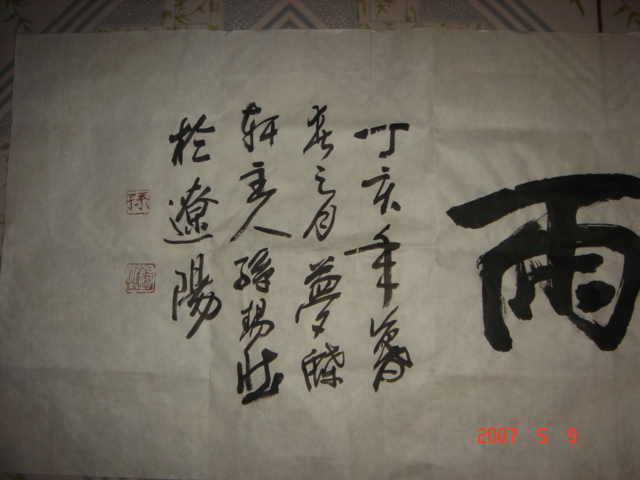 雨
丁亥年暮
春之月夢蝶
軒主人孫錫
於遼陽
孫
2007 5 9